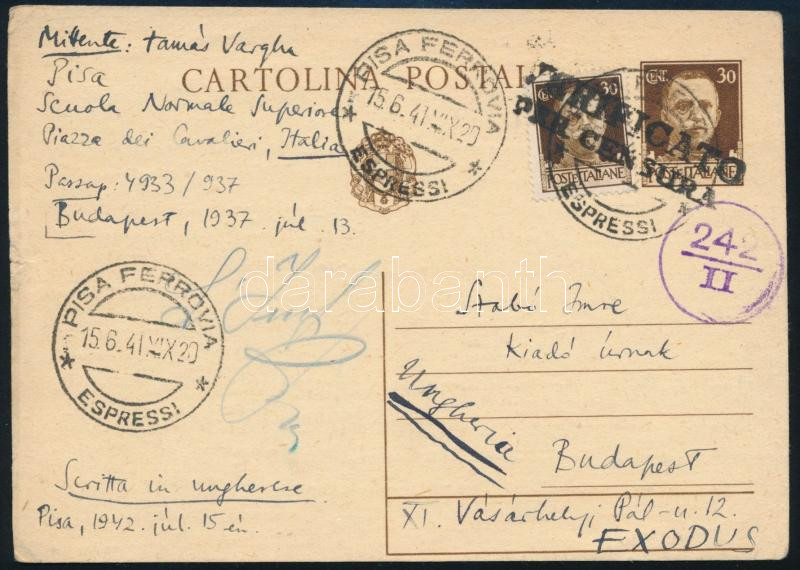 Mittente: Tamás Vargha
Pisa
Scuola Normale Superiore
Piazza dei Cavalieri, Italia
Passap: 4933/937
Budapest, 1937. júl. 13.
CARTOLINA POSTALE
PISA FERROVIA
15.6.41.XIX 20
ESPRESSI
CENT. 30
POSTE ITALIANE
CENT. 30
POSTE ITALIANE
VERIFICATO
PER CENSURA
ESPRESSI
242
II
PISA FERROVIA
15.6.41.XIX 20
ESPRESSI
darabanth
Szabó Imre
Kiadó úrnak
Ungheria
Budapest
XI. Vásárhelyi Pál-u. 12.
EXODUS
Scritta in ungherese
Pisa, 1942. júl. 15-én.